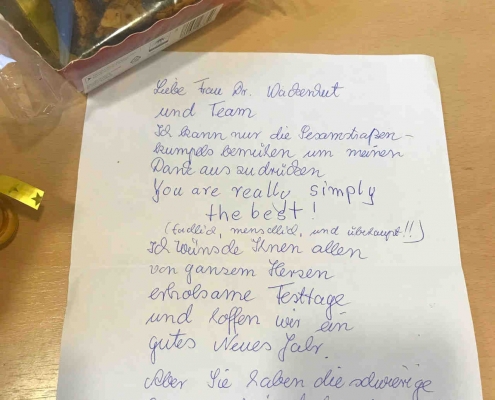 Liebe Frau Dr. Wackenhut
und Team
Ich kann nur die Sesamstraßen-
kumpels bemühen um meinen
Dank aus zu drücken
You are really simply
the best!
(fachlich, menschlich, und überhaupt!!)
Ich wünsche Ihnen allen
von ganzem Herzen
erholsame Festtage
und hoffen wir ein
gutes Neues Jahr.
Aber Sie haben die schwierige